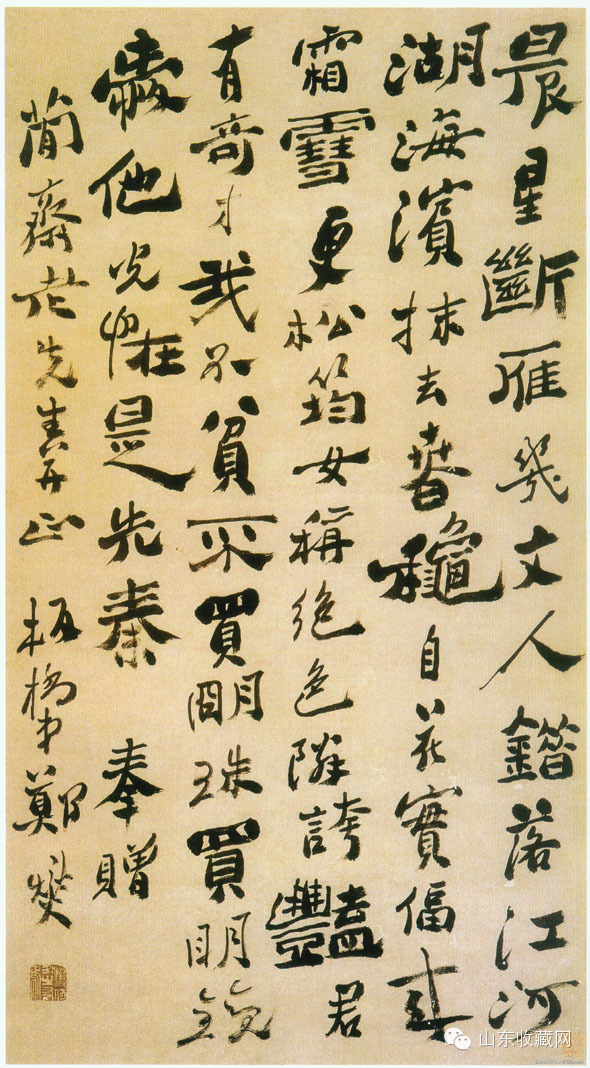 晨星斷雁幾文人錯落江河
湖海濱抹去春龝自花實偪来
霜雪更松筠女稱絶色隣誇豔君
有奇才我不貧不買明珠買明鏡
愛他光恠是先秦 奉贈
簡齋老先生正 板橋弟鄭燮
山东收藏网